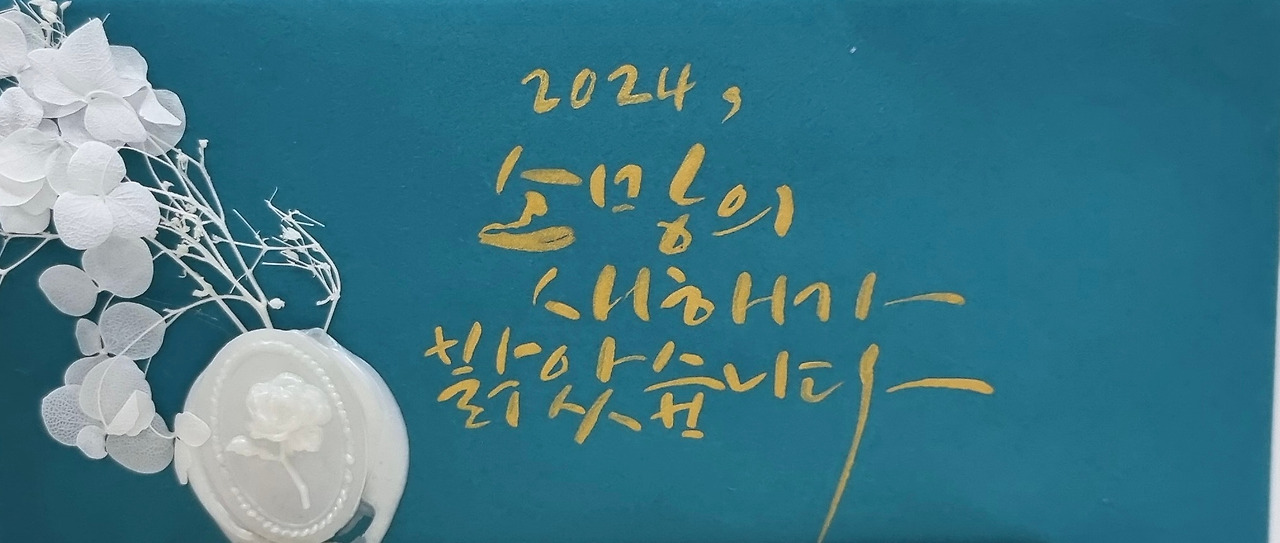 2024,
소망의
새해가
밝았습니다